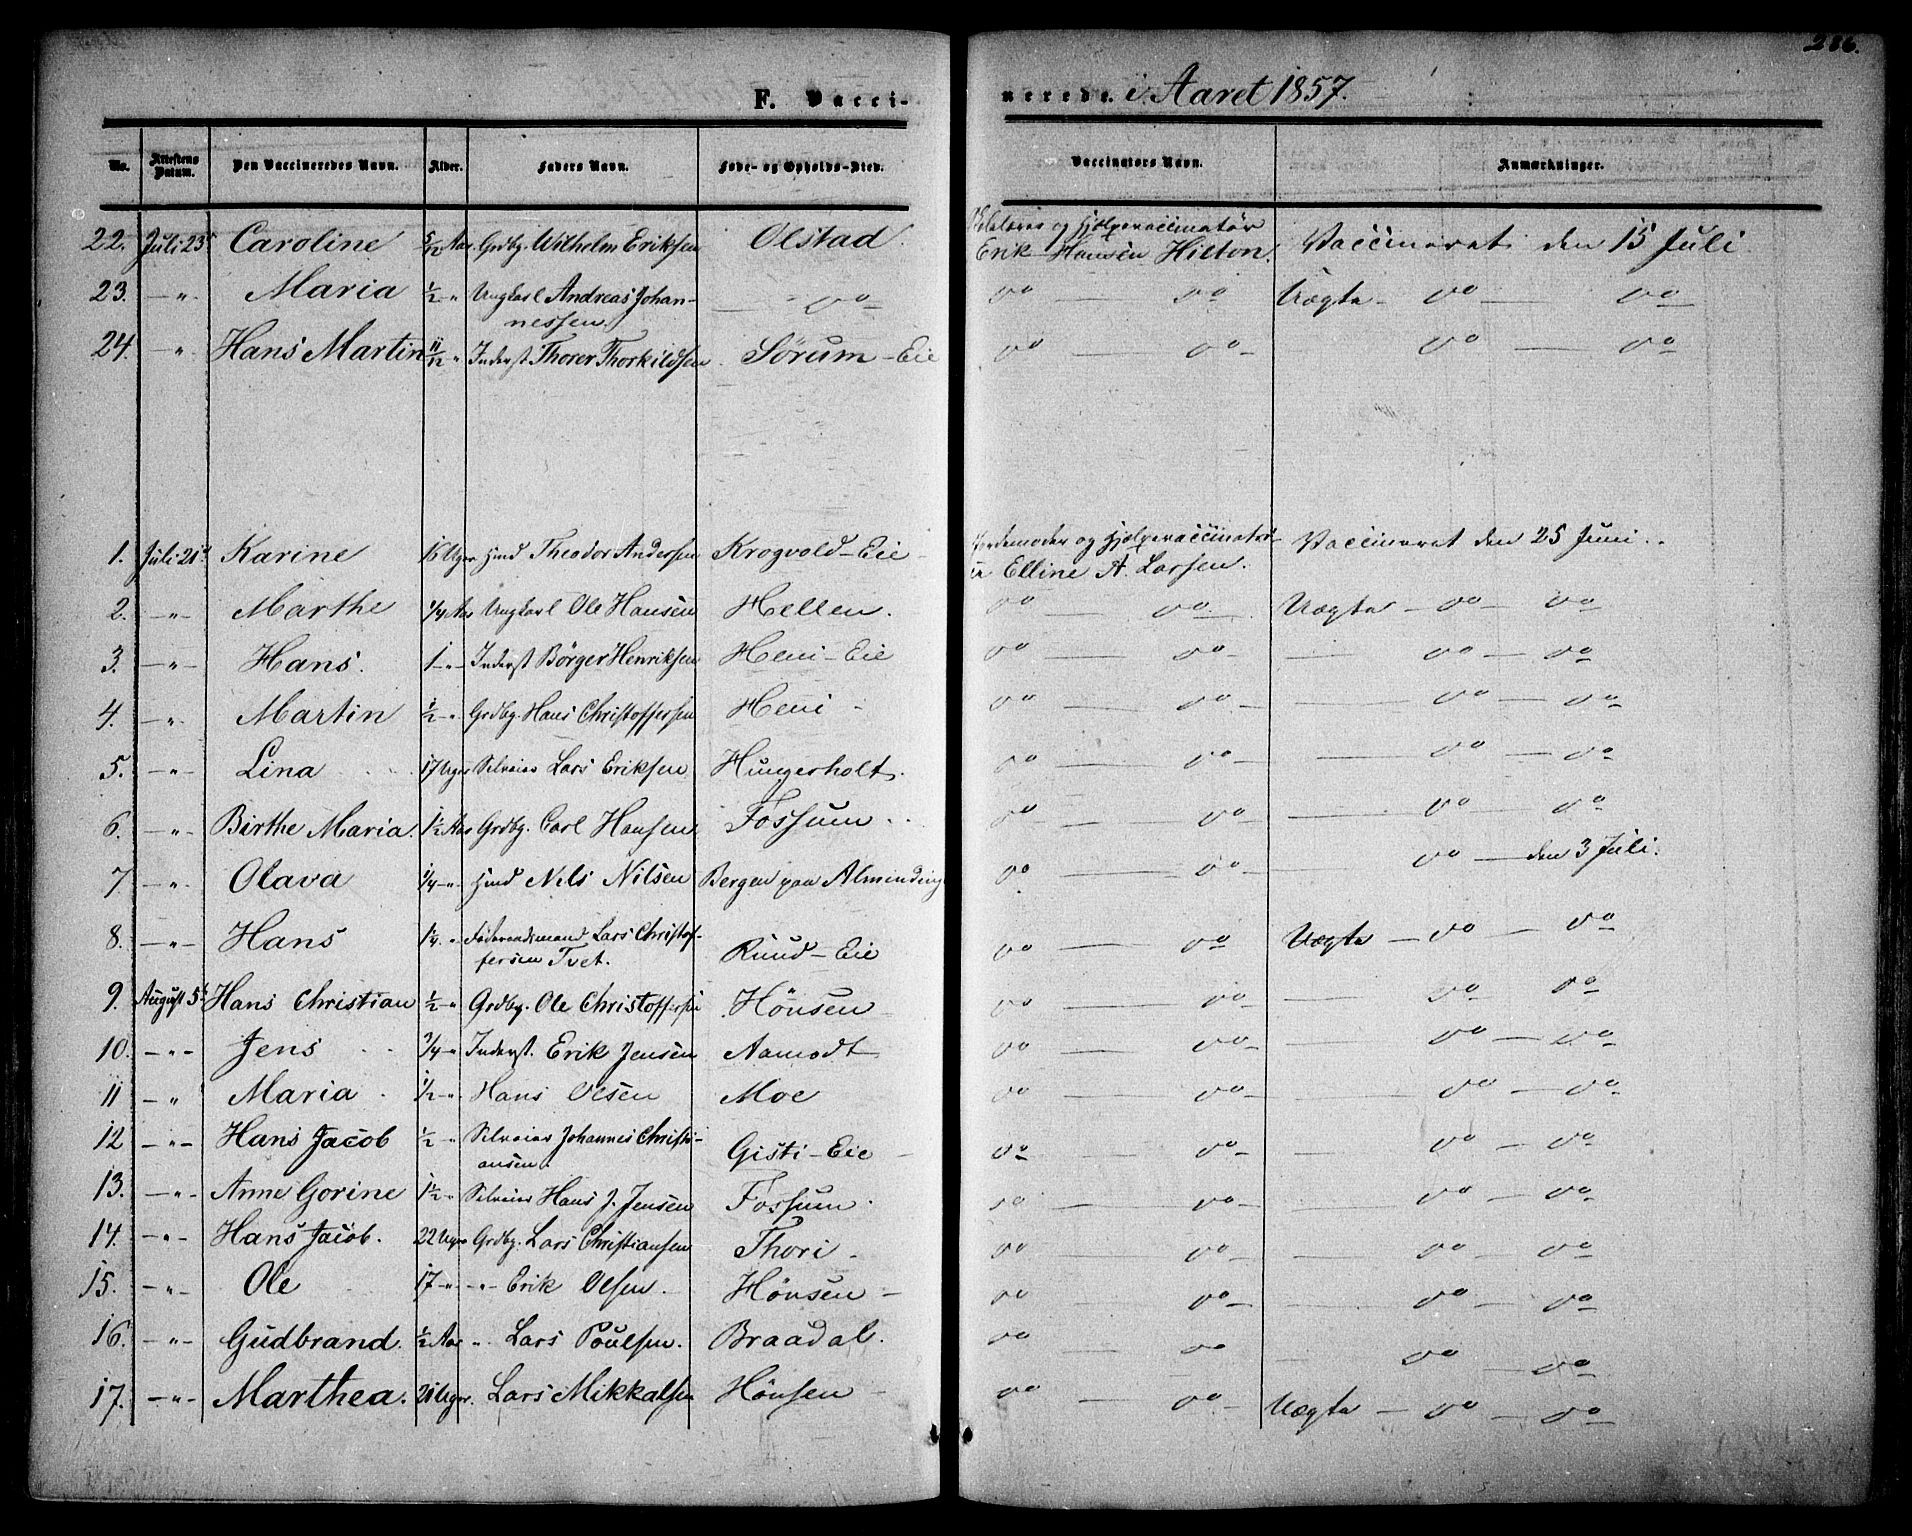 286.
F. Vacci- nerede. i Aaret 1857.
No. Attestens Datum. Den Vaccineredes Navn. Alder. Faders Navn. Føde- og Opholds-Sted. Vaccinators Navn. Anmærkninger.
22. Juli 23 Caroline 5/12 Aar Grdbg. Wilhelm Eriksen Olstad og Hjælpevaccinatør Erik Hansen Hilton. Vaccineret den 15 Juli
23. —"— Maria 1/2 —"— Ungkarl Andreas Johan-
nessen — do — do — do Uægte — do — do
24. " Hans Martin 11/12 " Inderst Thorer Thorkildsen Sørum-Eie do — do — do — do
1. Juli 21 Karine 15 Uger Hmd Theodor Andersen Krogvold-Eie Jordemoder og Hjælpevaccinatør-
Elline A. Larsen. Vaccineret den 25 Juni
2. —"— Marthe 1/4 Aar Ungkarl Ole Hansen Hellen. do — do Uægte — do — do
3. —"— Hans. 1 —"— Inderst Börger Henriksen Heni-Eie do — do — do — do
4. —"— Martin 1/2 —"— Grdbg. Hans Christoffersen Heni do — do — do — do
5. —"— Lina 17 Uger Selveier Lars Eriksen Hungerholt. do — do — do — do
6. —"— Birthe Maria. 1 1/2 Aar Grdbg. Carl Hansen Fossum do — do — do — do
7 —"— Olava 1/4 —"— Hmd Nels Nilsen Bergen paa Alminding do — do — do — den 3 Juli.
8. —"— Hans 1/4 —"— Föderaadsmand Lars Christof-
fersen Tvet. Ruud-Eie do — do Uægte — do — do
9. August 5 Hans Christian 1/2 —"— Grdbg. Ole Christoffersen Hönsen do — do — do — do
10. —"— Jens 3/4 —"— Inderst. Erik Jensen Aamodt do — do — do — do
11 —"— Maria 1/2 —"— Hans Olsen Moe do — do — do — do
12 —"— Hans Jacob 1/2 —"— Selveier Johannes Christi-
ansen. Gisti-Eie do — do — do — do
13. —"— Anne Gorine 1 1/2 —"— Selveier Hans J. Jensen Fossum do — do — do — do
14. —"— Hans Jacob. 22 Uger Grdbg. Lars Christiansen Thori do — do — do — do
15. —"— Ole 17 —"— —"— Erik Olsen. Hönsen do — do — do — do
16. —"— Gudbrand. 1/2 Aar " Lars Poulsen. Braadal. do — do — do — do
17. —"— Marthea. 21 Uger. Lars Mikkalsen Hönsen do — do Uægte — do — do